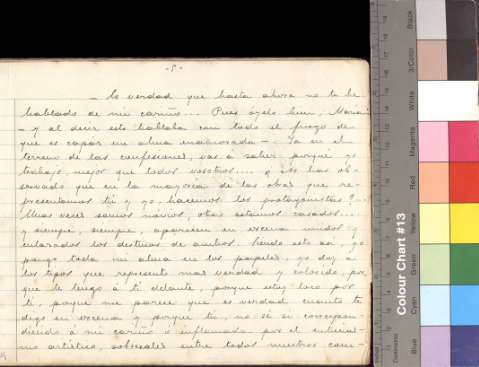 - 5 -
- la verdad que hasta ahora no te he
hablado de mi cariño... Pues óyelo bien, María:
- y al decir esto hablaba con todo el fuego de
que es capaz un alma enamorada - Ya en el
terreno de las confesiones, vas á saber porque yo
trabajo mejor que todos vosotros... ¿No has ob-
servado que en la mayoría de las obras que re-
presentamos tú y yo, hacemos los protagonistas?-
Unas veces somos novios, otras estamos casados...
y siempre, siempre, aparecen en escena unidos y
los destinos de ambos. Siendo esto así, yo
pongo toda mi alma en los papeles, yo doy á
los tipos que represento mas verdad y colorido, por
que te tengo á ti delante, porque estoy loco por
ti, porque me parece que es verdad cuanto te
digo en escena y porque tú, no sé si correspon-
diendo á mi cariño ó inflamada por el entusias-
mo artístico, sobresales entre todos nuestros com-
Colour Chart #13
Blue
Cyan
Green
Yellow
Red
Magenta
White
3/Color
Black